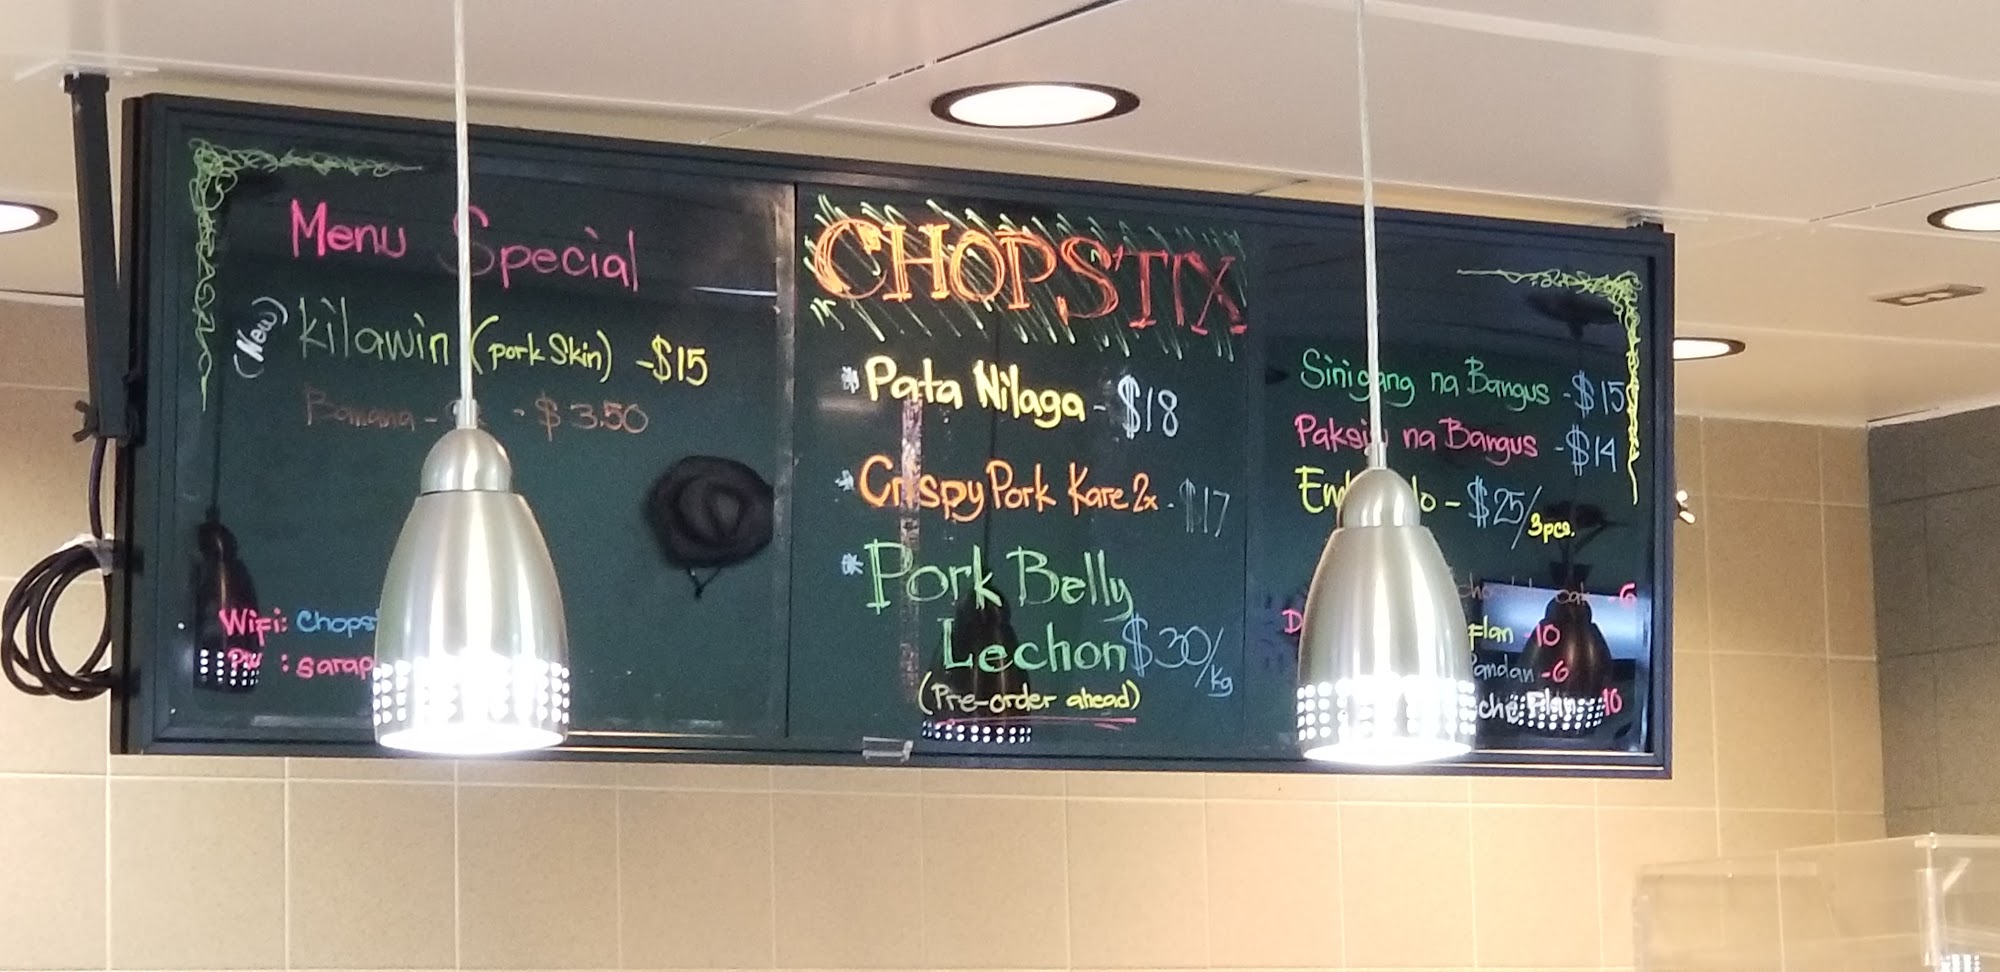 Menu Special
(New) Kilawin (pork Skin) -$15
Banana - - $3.50
Wifi:
PW :
CHOPSTIX
* Pata Nilaga - $18
* Crispy Pork Kare2x - $17
* Pork Belly
Lechon $30/kg
(Pre-order ahead)
Sinigang na Bangus - $15
Paksiw na Bangus - $14
- $25/3pcs.
-6
Flan -10
Pandan -6
Flan - 10